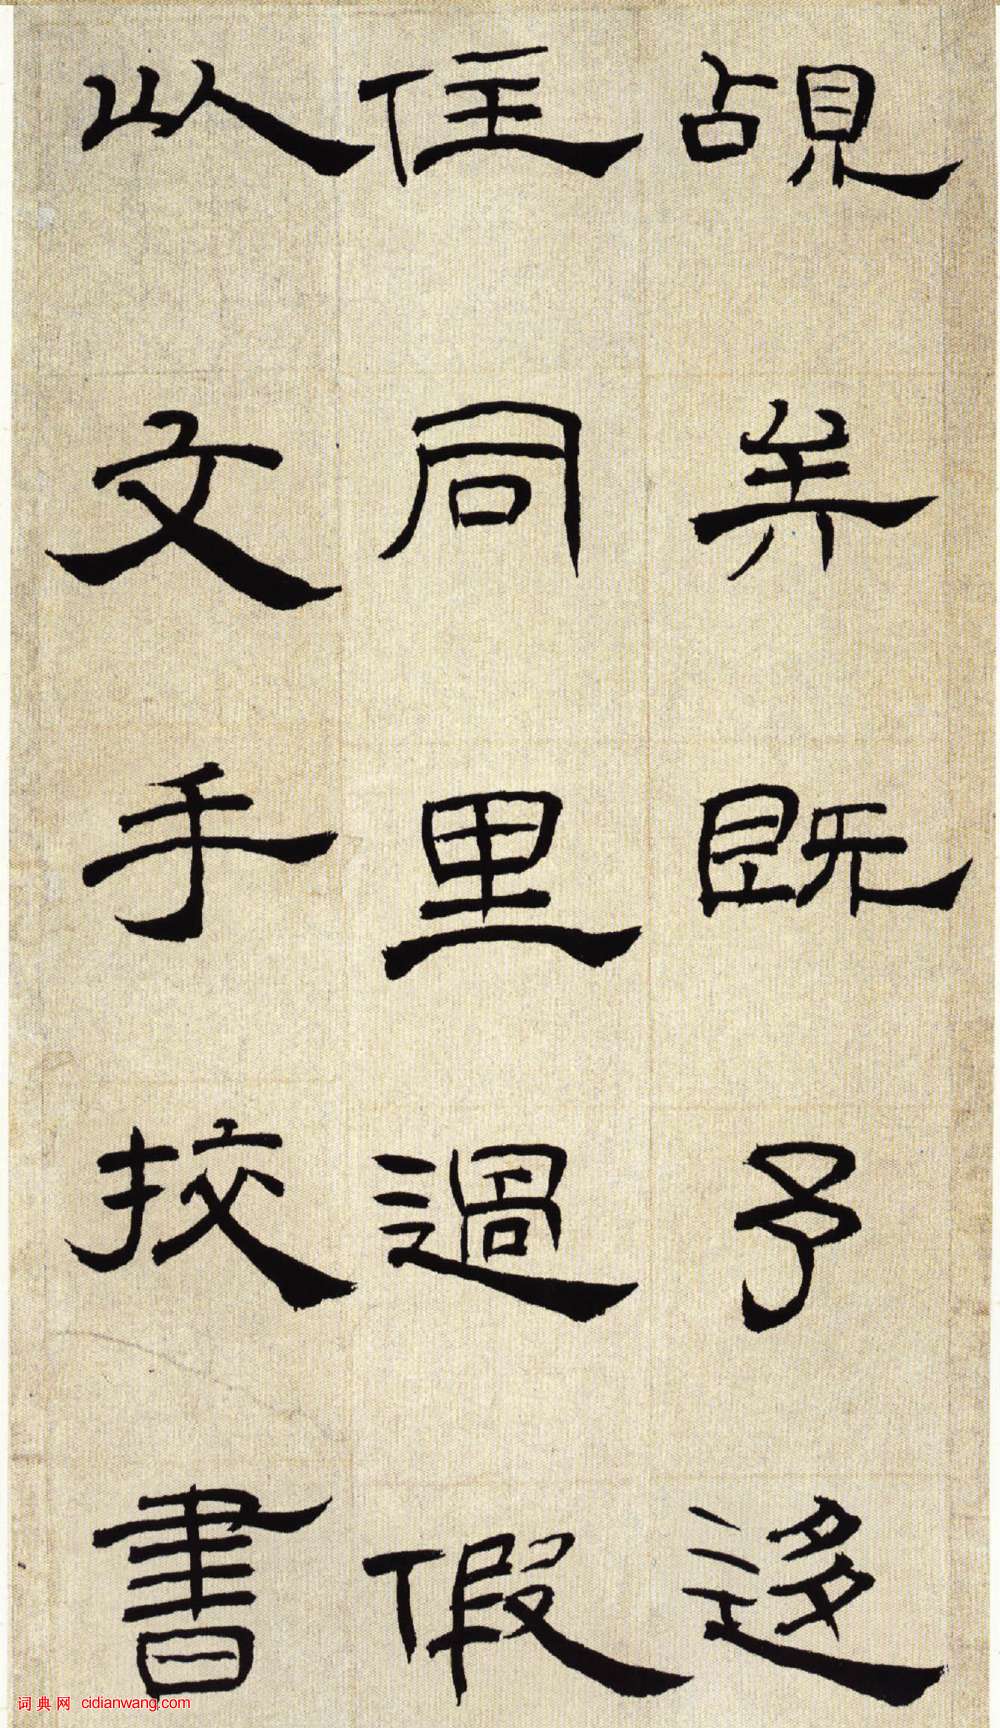 覘矣既予迻
住同里過假
以文手挍書
词典网 cidianwang.com